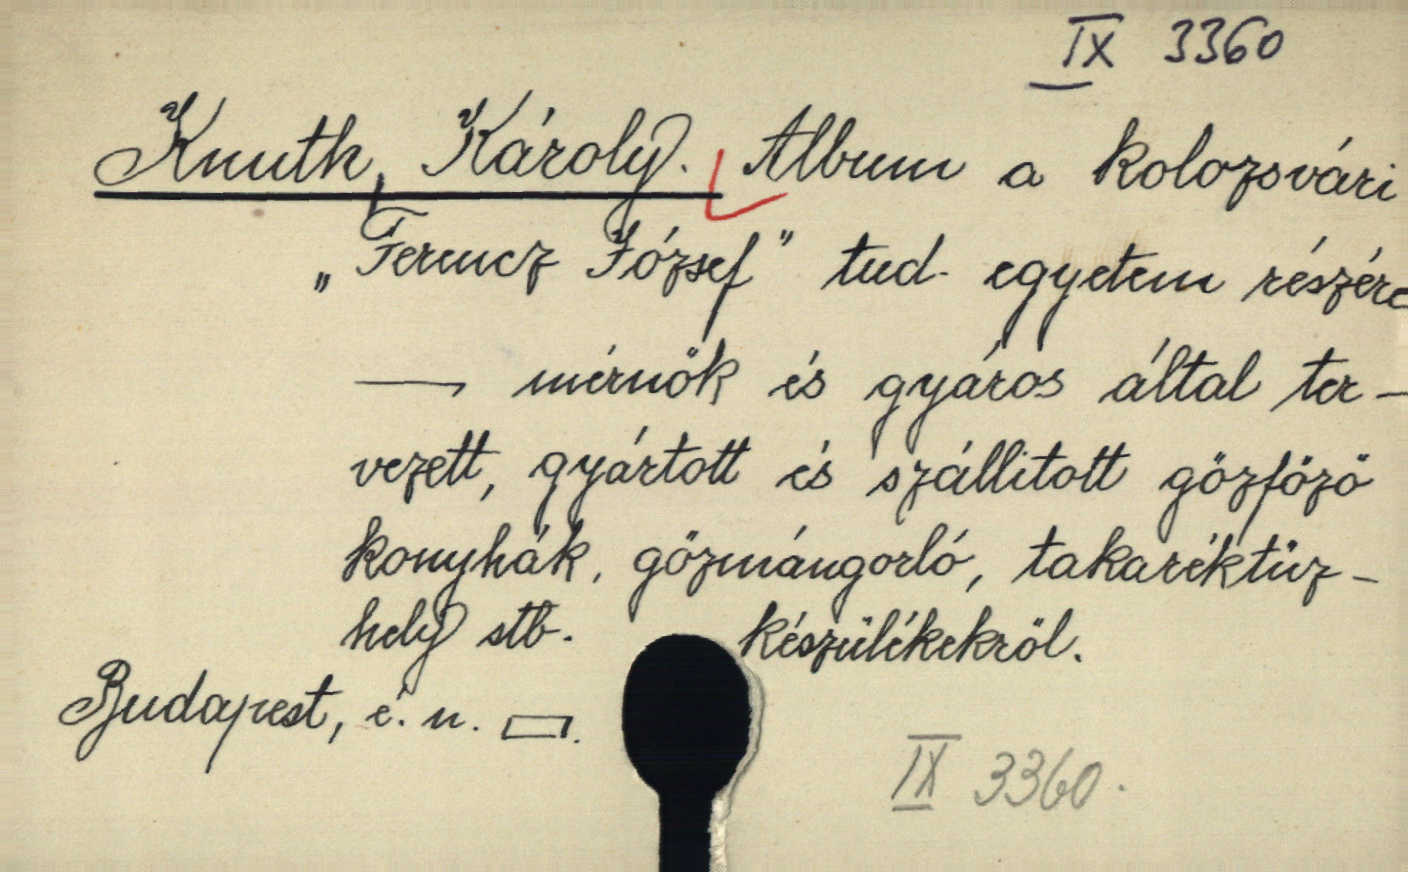 IX 3360
Knuth, Károly. Album a kolozsvári
„Ferencz József" tud. egyetem részére
— mérnök és gyáros által ter-
vezett, gyártott és szállitott gőzfőző
konyhák, gőzmángorló, takaréktűz-
hely stb. készülékekről.
Budapest, é. n. □.
IX 3360.